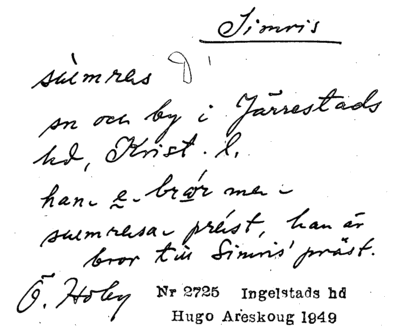 Simris
suemres
sn och by i Järrestads
hd, Krist. l.
han e bror me
suemresa präst, han är
bror till Simris' präst.
Ö. Hoby Nr 2725 Ingelstads hd
Hugo Areskoug 1949